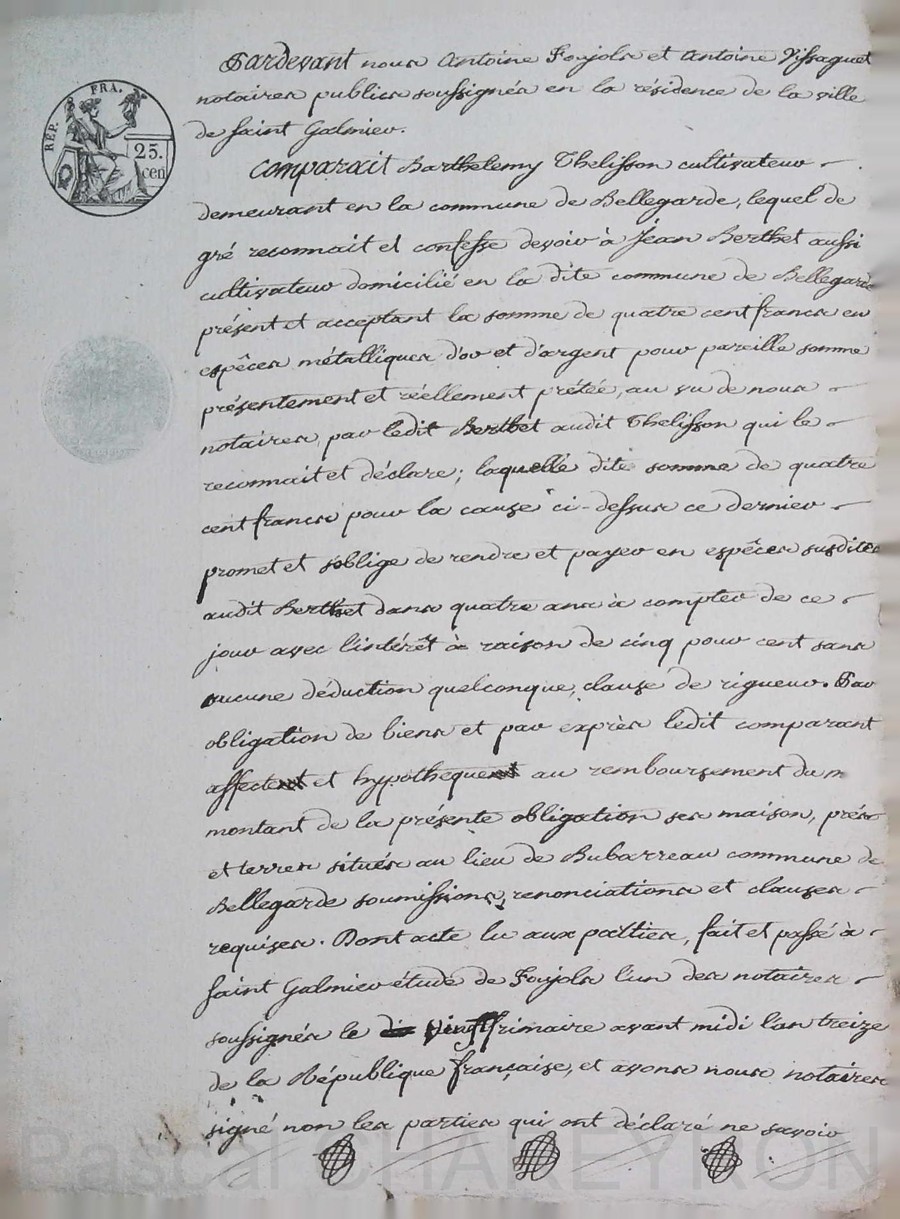 RÉP. FRA.
25.
cen
Pardevant nous Antoine Foujols et Antoine Vissaguet
notaires publics soussignés en la résidence de la ville
de Saint Galmier.
Comparait Barthelemy Thelisson cultivateur
demeurant en la commune de Bellegarde, lequel de
gré reconnait et confesse devoir à Jean Berthet aussi
cultivateur domicilié en la dite commune de Bellegarde
présent et acceptant la somme de quatre cent francs en
espêces métalliques d'or et d'argent pour pareille somme
présentement et réellement prêtée, au vu de nous
notaires, par ledit Berthet audit Thelisson qui le
reconnait et déclare; laquelle dite somme de quatre
cent francs pour la cause ci-dessus ce dernier
promet et s'oblige de rendre et payer en espêces susdites
audit Berthet dans quatre ans à compter de ce
jour avec l'intérêt à raison de cinq pour cent sans
aucune déduction quelconque, clause de rigueur. Par
obligation de biens et par exprès ledit comparant
affecte et hypotheque au remboursement du m
montant de la présente obligation ses maison, prés
et terres situés au lieu de Bubarreau commune de
Bellegarde soumissions, renonciations et clauses
requises. Dont acte lu aux parties, fait et passé à
Saint Galmier étude de Foujols l'un des notaires
soussignés le vingt frimaire avant midi l'an treize
de la République française, et avons nous notaires
signé non les parties qui ont déclaré ne savoir
Pascal CHAREYRON